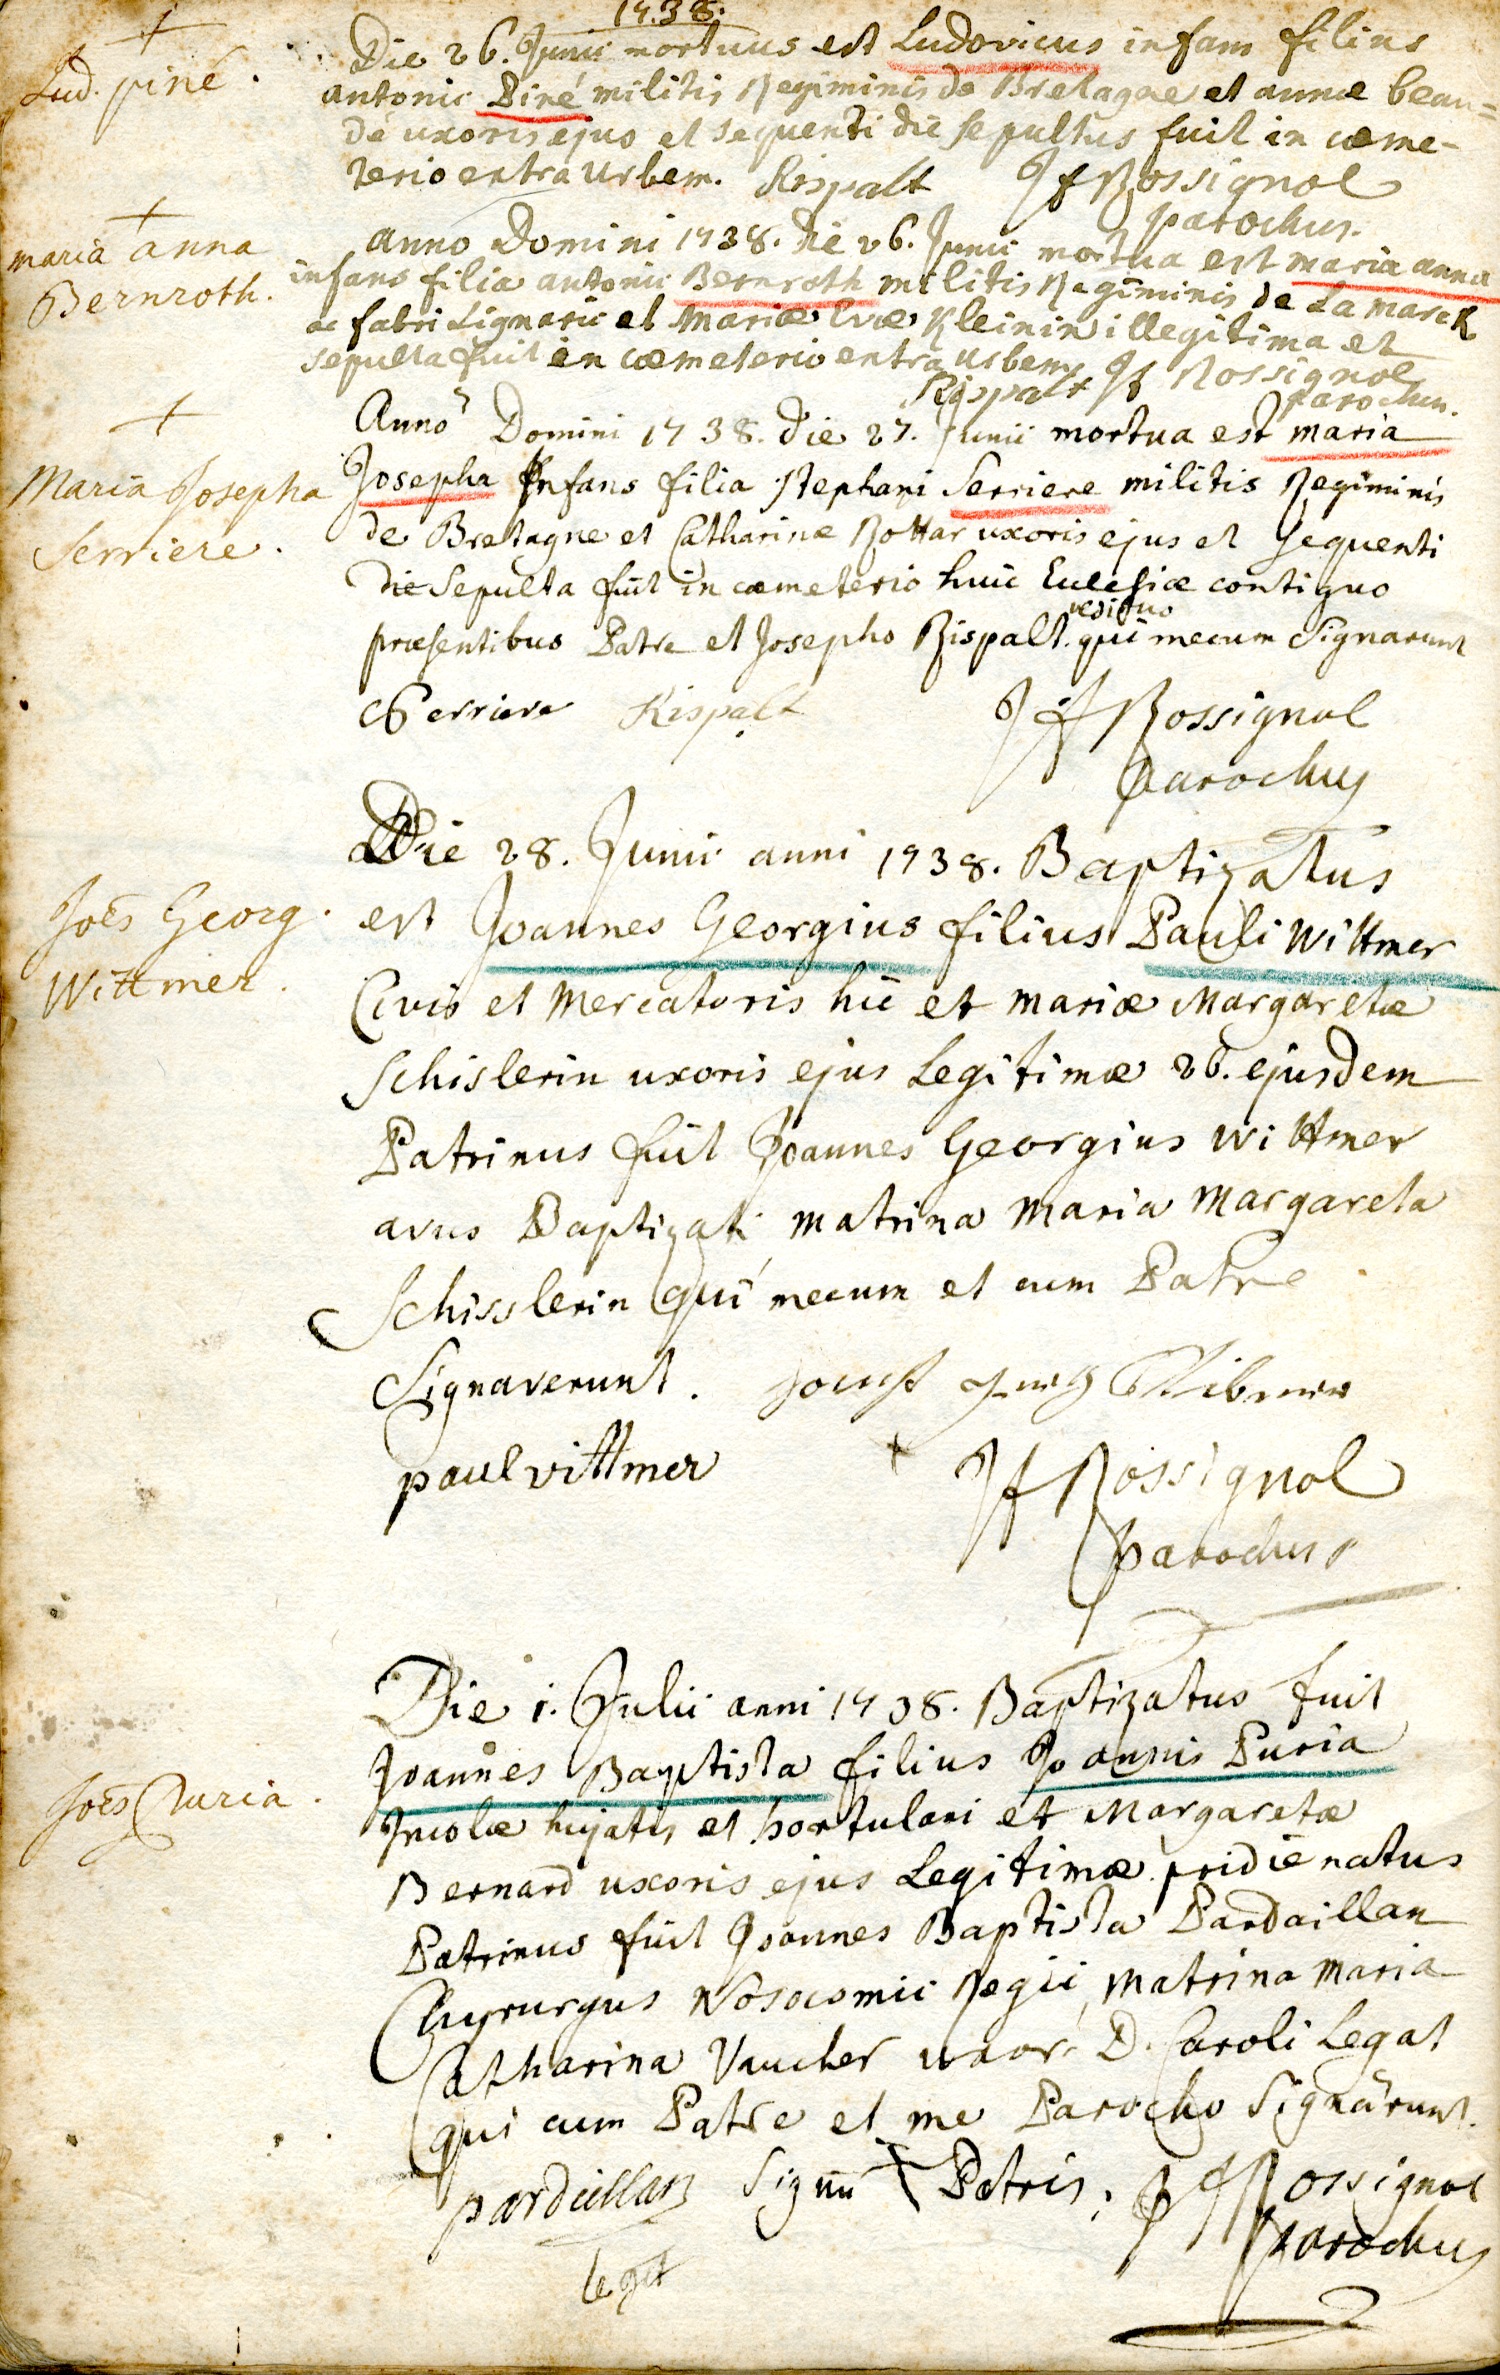 1738.
+
Lud. piné.
Die 26. Junii mortuus est Ludovicus infans filius
antonii Piné militis Regiminis de Bretagne et annæ beau=
dé uxoris ejus et sequenti die sepultus fuit in cœme-
terio extra Urbem. Rispalt JfRossignol
parochus.
+
maria anna
Bernroth.
anno Domini 1738. die 26. Junii mortua est maria anna
infans filia antonii Bernroth militis Regiminis de La marck
ac fabri Lignarii et Mariæ Evæ Kleinin illegitima et
sepulta fuit in cœmeterio extra urbem. Jf Rossignol
Rispalt parochus.
+
Maria Josepha
Serriere.
Anno Domini 1738. die 27. Junii mortua est maria
Josepha Infans filia Stephani Serriere militis Regiminis
de Bretagne et Catharinæ Rottar uxoris ejus et sequenti
die Sepulta fuit in cœmeterio huic Ecclesiæ contiguo
præsentibus Patre et Josepho Rispalt. qui mecum Signarunt
Serriere Rispalt JfRossignol
parochus
Joes Georg.
Wittmer.
Die 28. Junii anni 1738. Baptizatus
est Joannes Georgius filius Pauli Wittmer
Civis et Mercatoris hic et mariæ Margaretæ
Schislerin uxoris ejus Legitimæ 26. ejusdem
Patrinus fuit Joannes Georgius Wittmer
avus Baptizati matrina Maria Margareta
Schisslerin qui mecum et cum Patre
Signaverunt.
paul vittmer + Jf Rossignol
parochus
Joes Puria.
Die 1. Julii anni 1738. Baptizatus fuit
Joannes Baptista filius Joannis Puria
Incolæ hujatis et hortulani et Margaretæ
Bernard uxoris ejus Legitimæ pridie natus
Patrinus fuit Joannes Baptista Pardaillan
Chyrurgus Nosocomii Regii, Matrina Maria
Catharina Vaucher uxor D. Caroli Legat
qui cum Patre et me Parocho Signârunt.
pardaillan Signū + Patris, JfRossignol
legat parochus